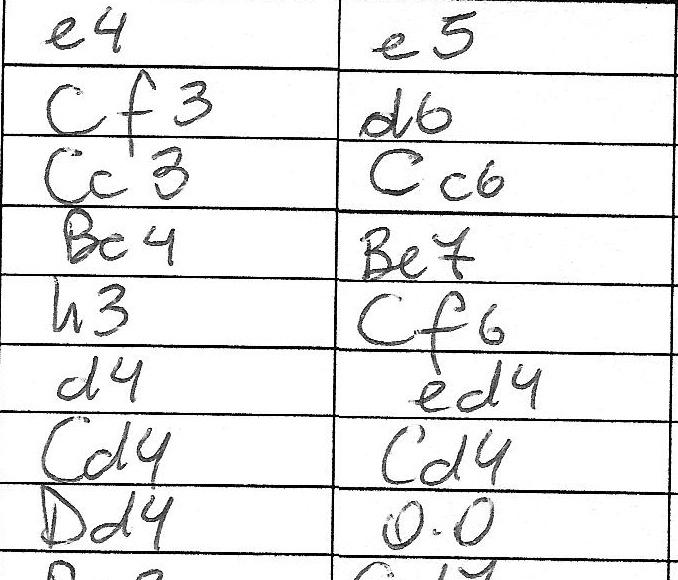 e4 e5
Cf3 d6
Cc3 Cc6
Bc4 Be7
h3 Cf6
d4 ed4
Cd4 Cd4
Dd4 0.0